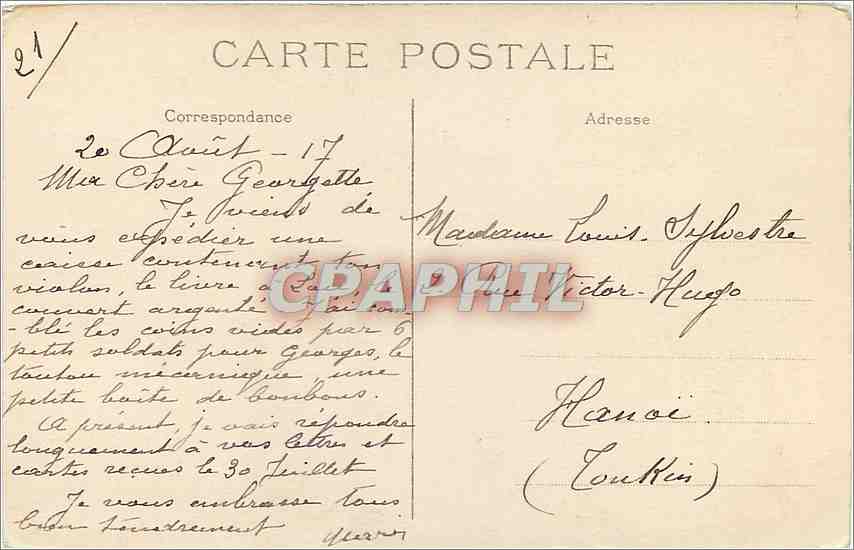 21/
CARTE POSTALE
Correspondance
20 Août - 17
Ma Chère Georgette
Je viens de
vous expédier une
caisse contenant ton
violon, le livre à le
couvert argenté J'ai com-
-blé les coins vides par 6
petits soldats pour Georges, le
toutou mécanique une
petite boîte de bonbons.
A présent, je vais répondre
longuement à vos lettres et
cartes reçues le 30 Juillet
Je vous embrasse tous
bien tendrement
Adresse
Madame Louis. Sylvestre
2 Rue Victor-Hugo
Hanoï
(Tonkin)
CPAPHIL